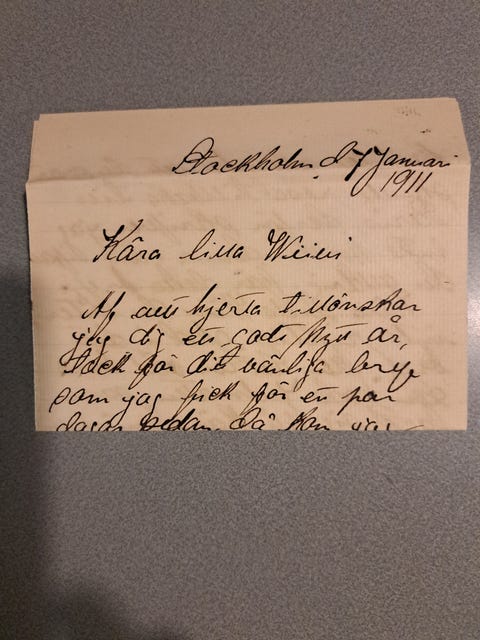 Stockholm d 7 Januari
1911
Kära lilla
Af allt hjerta tillönskar
jag dig ett godt nytt år,
tack för dit vänliga bref
som jag fick för en par
dagar sedan, då kom jag